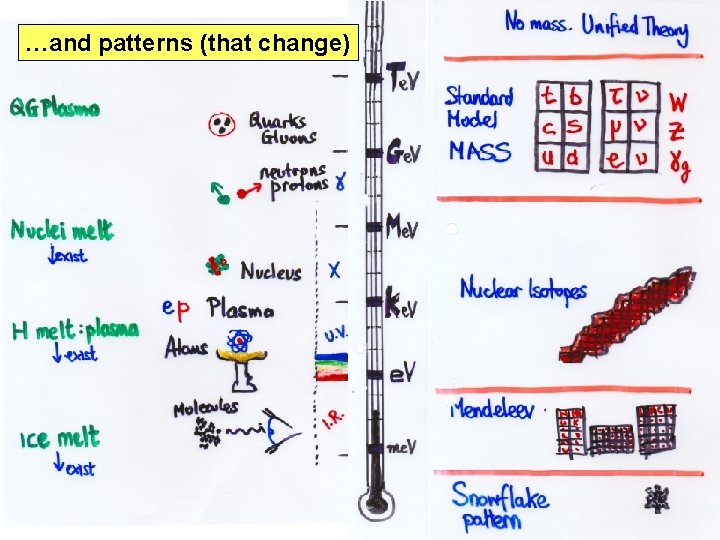 …and patterns (that change)
QG Plasma
Quarks
Gluons
neutrons
protons
γ
Nuclei melt
↓exist
Nucleus
X
e p Plasma
H melt: plasma
↓exist
Atoms
U.V.
Molecules
I.R.
ICE melt
↓exist
TeV
GeV
MeV
KeV
eV
meV
No mass. Unified Theory
Standard
Model
MASS
t b τ ν W
c s μ ν Z
u d e ν γ g
Nuclear Isotopes
Mendeleev
Snowflake
pattern